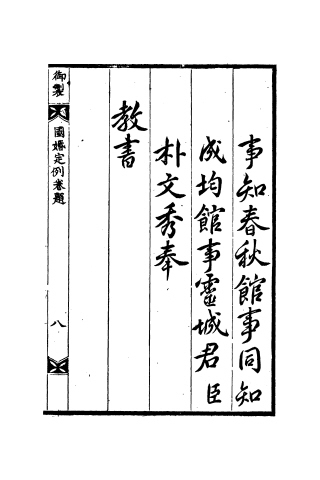 事知春秋館事同知
成均館事靈城君臣
朴文秀奉
教書
御製
國婚定例卷題
八